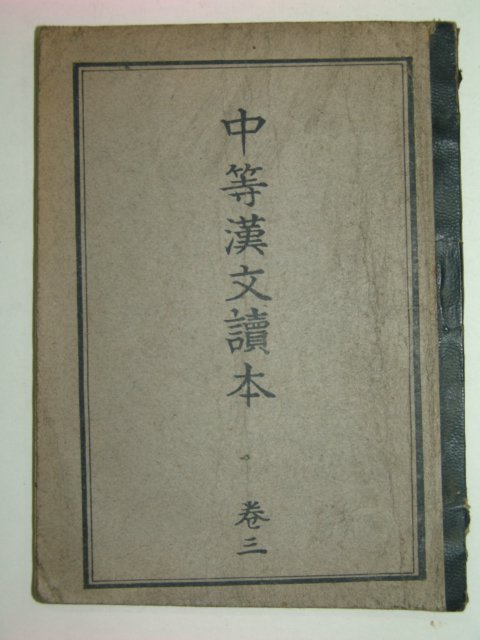 中等漢文讀本
卷三